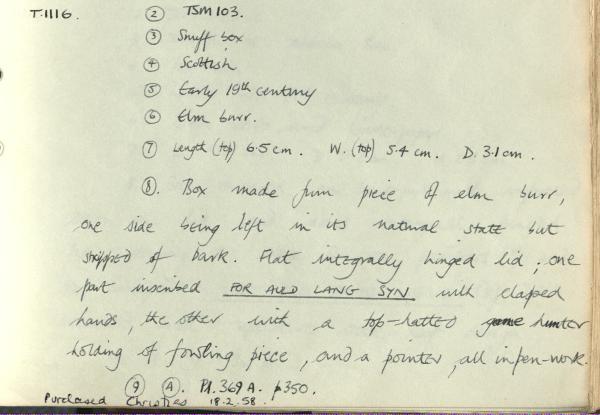 T.1116. ② TSM103.
③ Snuff box
④ Scottish
⑤ Early 19th century
⑥ Elm burr.
⑦ Length (top) 6.5cm. W. (top) 5.4 cm. D. 3.1cm.
⑧. Box made from piece of elm burr,
one side being left in its natural state but
stripped of bark. Flat integrally hinged lid; one
part inscribed FOR AULD LANG SYN with clasped
hands, the other with a top-hatted game hunter
holding of fowling piece, and a pointer, all in pen-work.
⑨ Ⓐ. Pl. 369A. p350.
Purchased Christies 18.2.58.